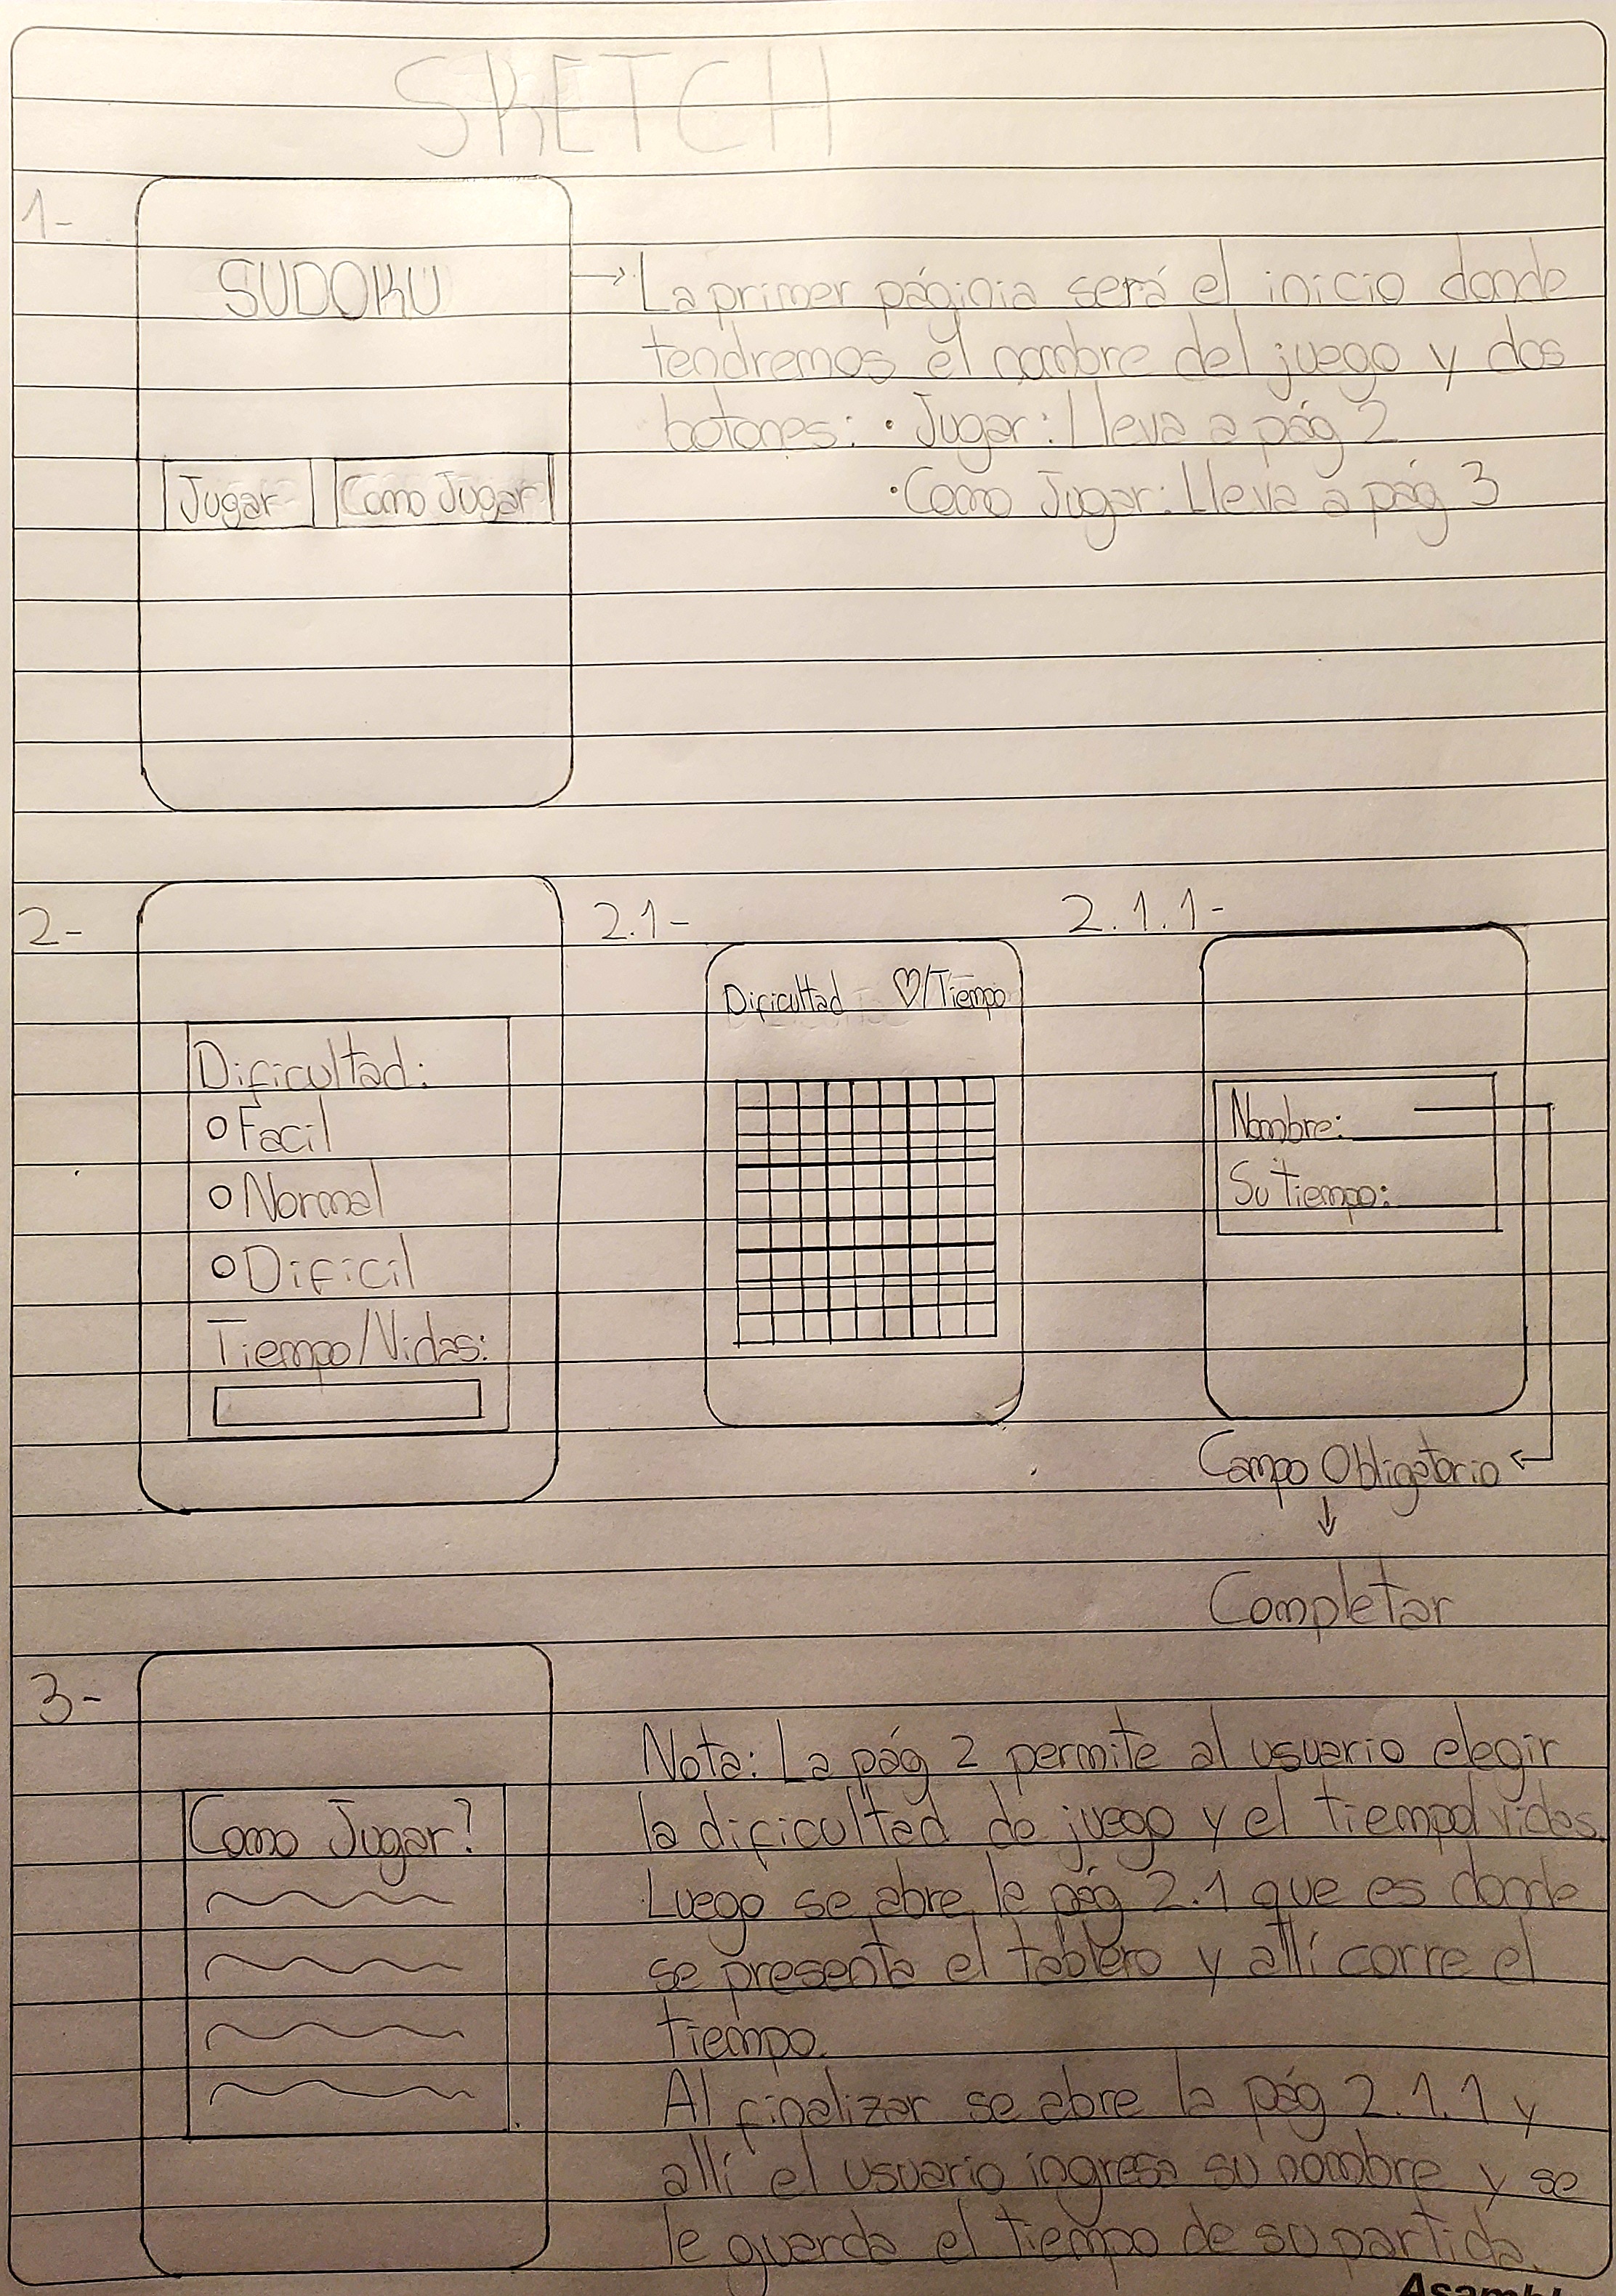 SKETCH
1-
SUDOKU
Jugar
Como Jugar
→ La primer páginia será el inicio donde
tendremos el nombre del juego y dos
botones: • Jugar: Lleva a pág 2
• Como Jugar: Lleva a pág 3
2-
Dificultad:
Facil
Normal
Dificil
Tiempo/Vidas:
2.1-
Dificultad ♡/Tiempo
2.1.1-
Nombre:
Su tiempo:
Campo Obligatorio
Completar
3-
Como Jugar?
Nota: La pág 2 permite al usuario elegir
la dificultad de juego y el tiempo/vidas.
Luego se abre la pág 2.1 que es donde
se presenta el tablero y allí corre el
tiempo.
Al finalizar se abre la pág 2.1.1 y
allí el usuario ingresa su nombre y se
le guarda el tiempo de su partida.